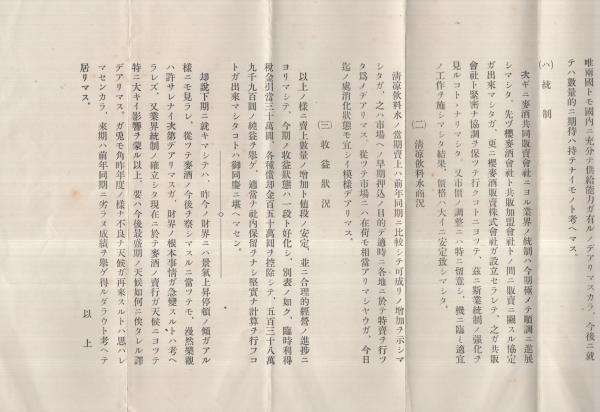 唯兩國トモ國內ニ充分ナ供給能力ガ有ルノデアリマスカラ、今後ニ就
テハ數量的ニ期待ハ持テナイモノト考ヘマス。
(ハ) 統制
次ギニ麥酒共同販賣會社ニヨル業界ノ統制ハ今期極メテ順調ニ進展
シマシタ。先ヅ櫻麥酒會社ト共販加盟會社トノ間ニ販賣ニ關スル協定
ガ出來マシタガ、更ニ櫻麥酒販賣株式會社ガ設立セラレテ、之ガ共販
會社ト緊密ナ協調ヲ保ツテ行クコトニヨツテ、茲ニ斯業統制ノ强化ヲ
見ルコトヽナリマシタ。又市價ノ調整ニハ特ニ留意シ、機ニ臨ミ適宜
ノ工作ヲ施シマシタ結果、價格ハ大イニ安定致シマシタ。
(二) 清凉飲料水商況
清凉飲料水ノ當期賣上ハ前年同期ニ比較シテ可成リノ增加ヲ示シマ
シタガ、之ハ市場ヘノ早期押込ノ目的デ適時ニ各地ニ於テ特賣ヲ行ツ
タ爲メデアリマス。從ツテ市場ニハ在荷モ相當アリマシヤウガ、今日
迄ノ處消化狀態モ宜シイ模樣デアリマス。
(三) 收益狀況
以上ノ樣ニ賣上數量ノ增加ト値段ノ安定、並ニ合理的經營ノ進捗ニ
ヨリマシテ、今期ノ收益狀態ハ一段ト好化シ、別表ノ如ク、臨時利得
稅金引當三十萬圓、各種償却金百五十萬圓ヲ控除シテ、五百三十八萬
九千九百圓ノ純益ヲ擧ゲ、適當ナ社內保留ヲナシ堅實ナ計算ヲ行フコ
トガ出來マシタコトハ御同慶ニ堪ヘマセン。
却說下期ニ就キマシテハ、昨今ノ財界ニハ景氣上昇停頓ノ傾ガアル
樣ニモ見ラレ、從ツテ麥酒ノ今後ヲ察シマスルニ當ツテモ、漫然樂觀
ハ許サレナイ次第デアリマスガ、財界ノ根本事情ガ急變スルトハ考ヘ
ラレズ、又業界統制ノ確立シタ現在ニ於テ麥酒ノ賣行ガ天候ニヨツテ
特ニ大キイ影響ヲ蒙ル以上、要ハ今後最盛期ノ天候如何ニ俟タレル譯
デアリマス。ガ兎モ角昨年度ノ樣ナ不良ナ天候ガ再來スルトハ思ハレ
マセンカラ、來期ハ前年同期ニ劣ラヌ成績ヲ擧ゲ得ルダラウト考ヘテ
居リマス。
以上